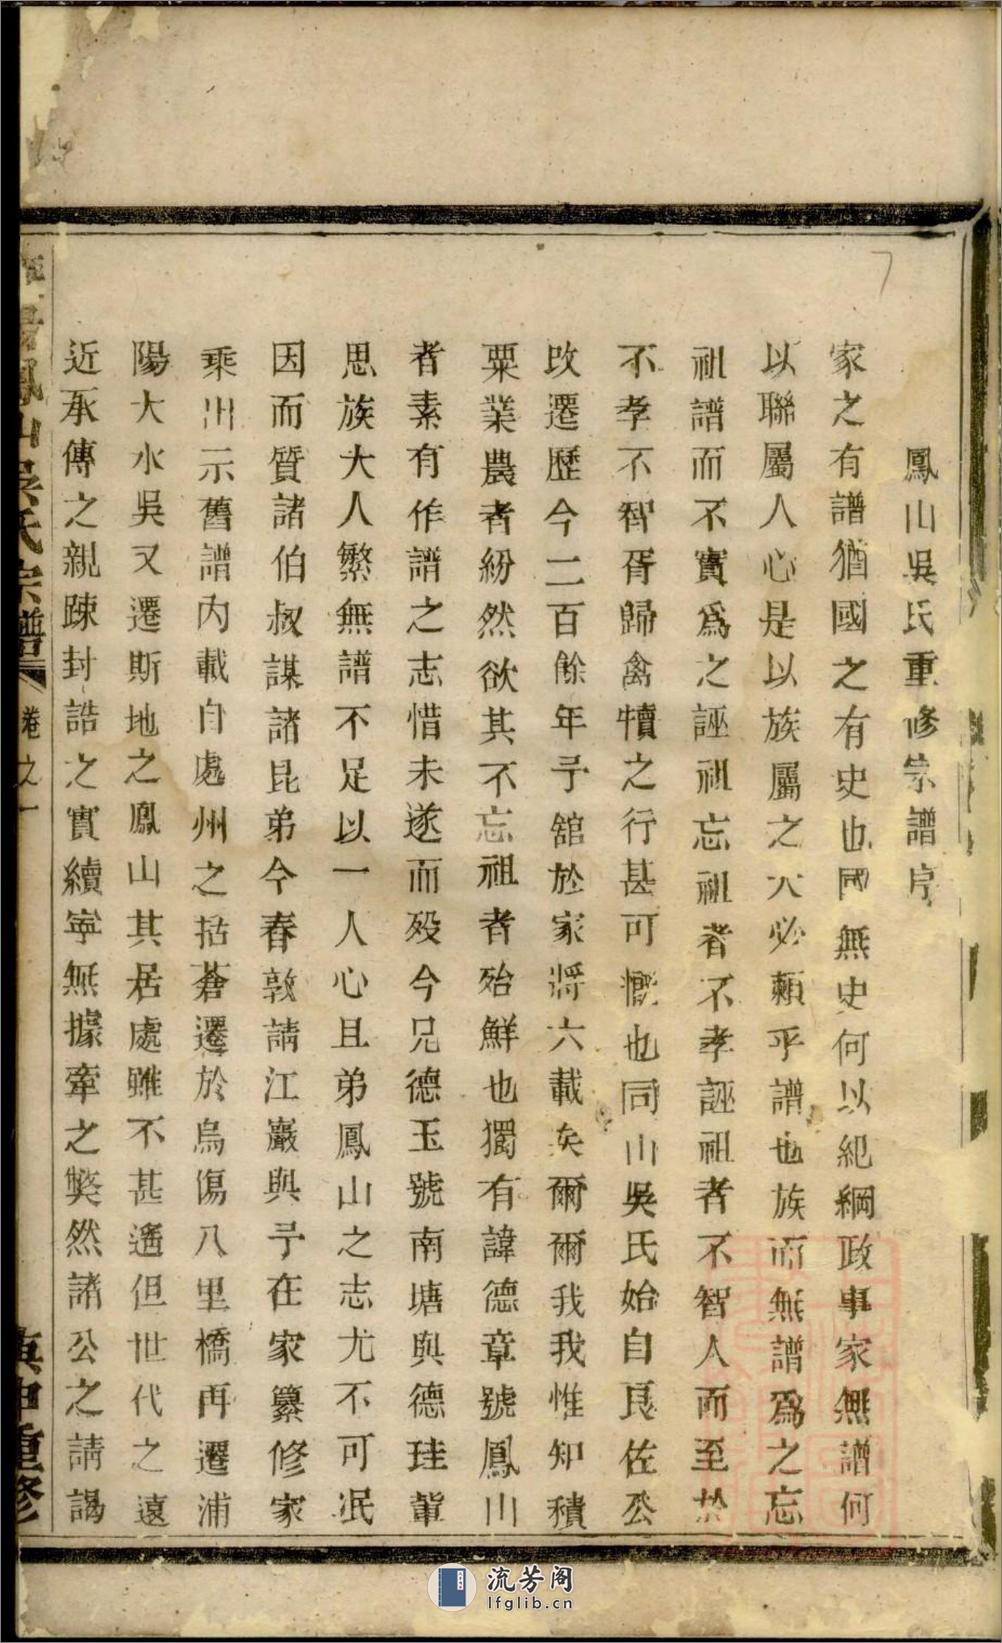 鳳山吳氏重修宗譜序
家之有譜猶國之有史也國無史何以紀綱政事家無譜何
以聯屬人心是以族屬之大必賴乎譜也族而無譜爲之忘
祖譜而不實爲之誣祖忘祖者不孝誣祖者不智人而至於
不孝不智胥歸禽犢之行甚可慨也同山吳氏始自良佐公
改遷歷今二百餘年予舘於家將六載矣爾爾我我惟知積
粟業農者紛然欲其不忘祖者殆鮮也獨有諱德章號鳳山
者素有作譜之志惜未遂而殁今兄德玉號南塘與德珪輩
思族大人繁無譜不足以一人心且弟鳳山之志尤不可泯
因而質諸伯叔謀諸昆弟今春敦請江巖與予在家纂修家
乘出示舊譜內載自處州之括蒼遷於烏傷八里橋再遷浦
陽大水吳又遷斯地之鳳山其居處雖不甚遙但世代之遠
近承傳之親踈封誥之實續寧無據牽之獘然諸公之請謁
鳳山吳氏宗譜 卷之一 庚申重修
流芳阁
lfglib.cn